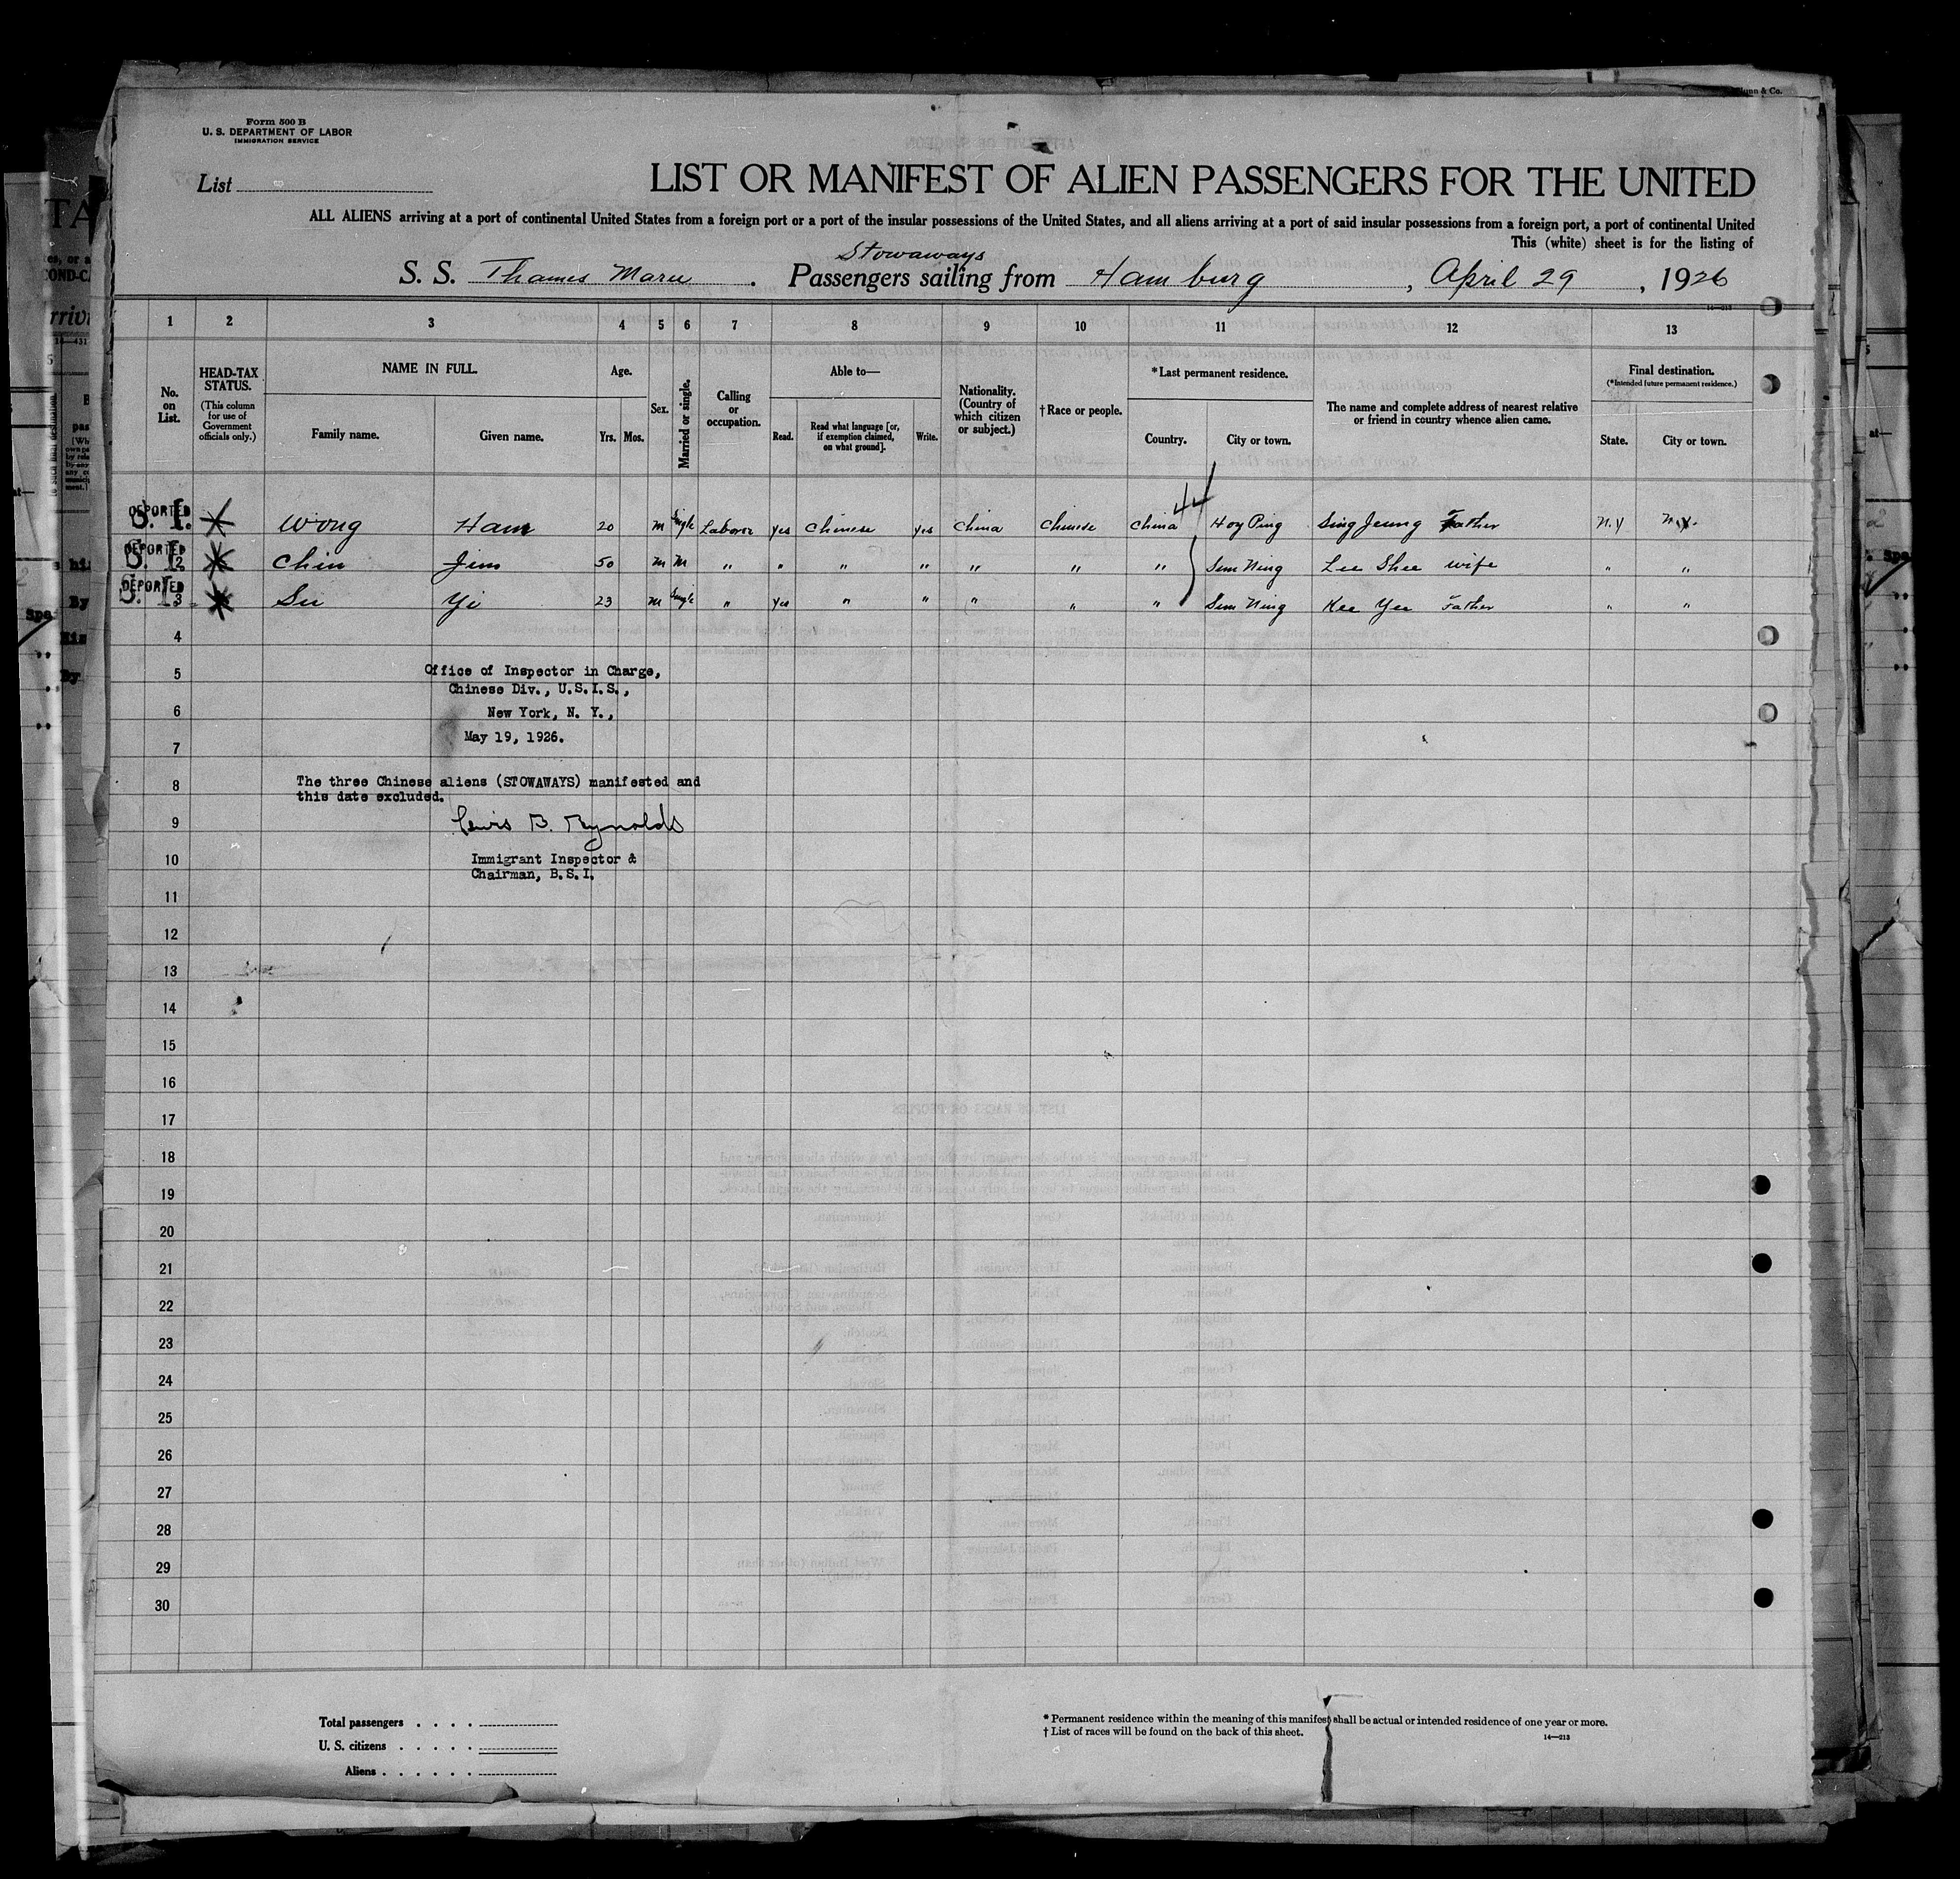 Form 500 B
U. S. DEPARTMENT OF LABOR
IMMIGRATION SERVICE
List
LIST OR MANIFEST OF ALIEN PASSENGERS FOR THE UNITED
ALL ALIENS arriving at a port of continental United States from a foreign port or a port of the insular possessions of the United States, and all aliens arriving at a port of said insular possessions from a foreign port, a port of continental United
This (white) sheet is for the listing of
Stowaways
S. S. Thames Maru. Passengers sailing from Hamburg, April 29, 1926
1 2 3 4 5 6 7 8 9 10 11 12 13
No. on List.
HEAD-TAX STATUS.
(This column for use of Government officials only.)
NAME IN FULL.
Family name. Given name.
Age.
Yrs. Mos.
Sex.
Married or single.
Calling or occupation.
Able to—
Read. Read what language [or, if exemption claimed, on what ground]. Write.
Nationality. (Country of which citizen or subject.)
†Race or people.
*Last permanent residence.
Country. City or town.
The name and complete address of nearest relative or friend in country whence alien came.
Final destination.
(*Intended future permanent residence.)
State. City or town.
DEPORTED S. I. Wong Ham 20 M Single Laborer yes Chinese yes China Chinese China Hoy Ping Sing Jeung Father N.Y N.Y.
DEPORTED S. I. 2 Chin Jim 50 M M " " " " " " " Sun Ning Lee Shee wife " "
DEPORTED S. I. 3 Su Yi 23 M Single " yes " " " " " Sun Ning Kee Yee Father " "
4
5
6
7
8
9
10
11
12
13
14
15
16
17
18
19
20
21
22
23
24
25
26
27
28
29
30
Office of Inspector in Charge,
Chinese Div., U.S.I.S.,
New York, N. Y.,
May 19, 1926.
The three Chinese aliens (STOWAWAYS) manifested and
this date excluded.
Lewis B. Reynolds
Immigrant Inspector &
Chairman, B.S.I.
Total passengers . . . .
U. S. citizens . . . . .
Aliens . . . . . .
* Permanent residence within the meaning of this manifest shall be actual or intended residence of one year or more.
† List of races will be found on the back of this sheet.
14—213